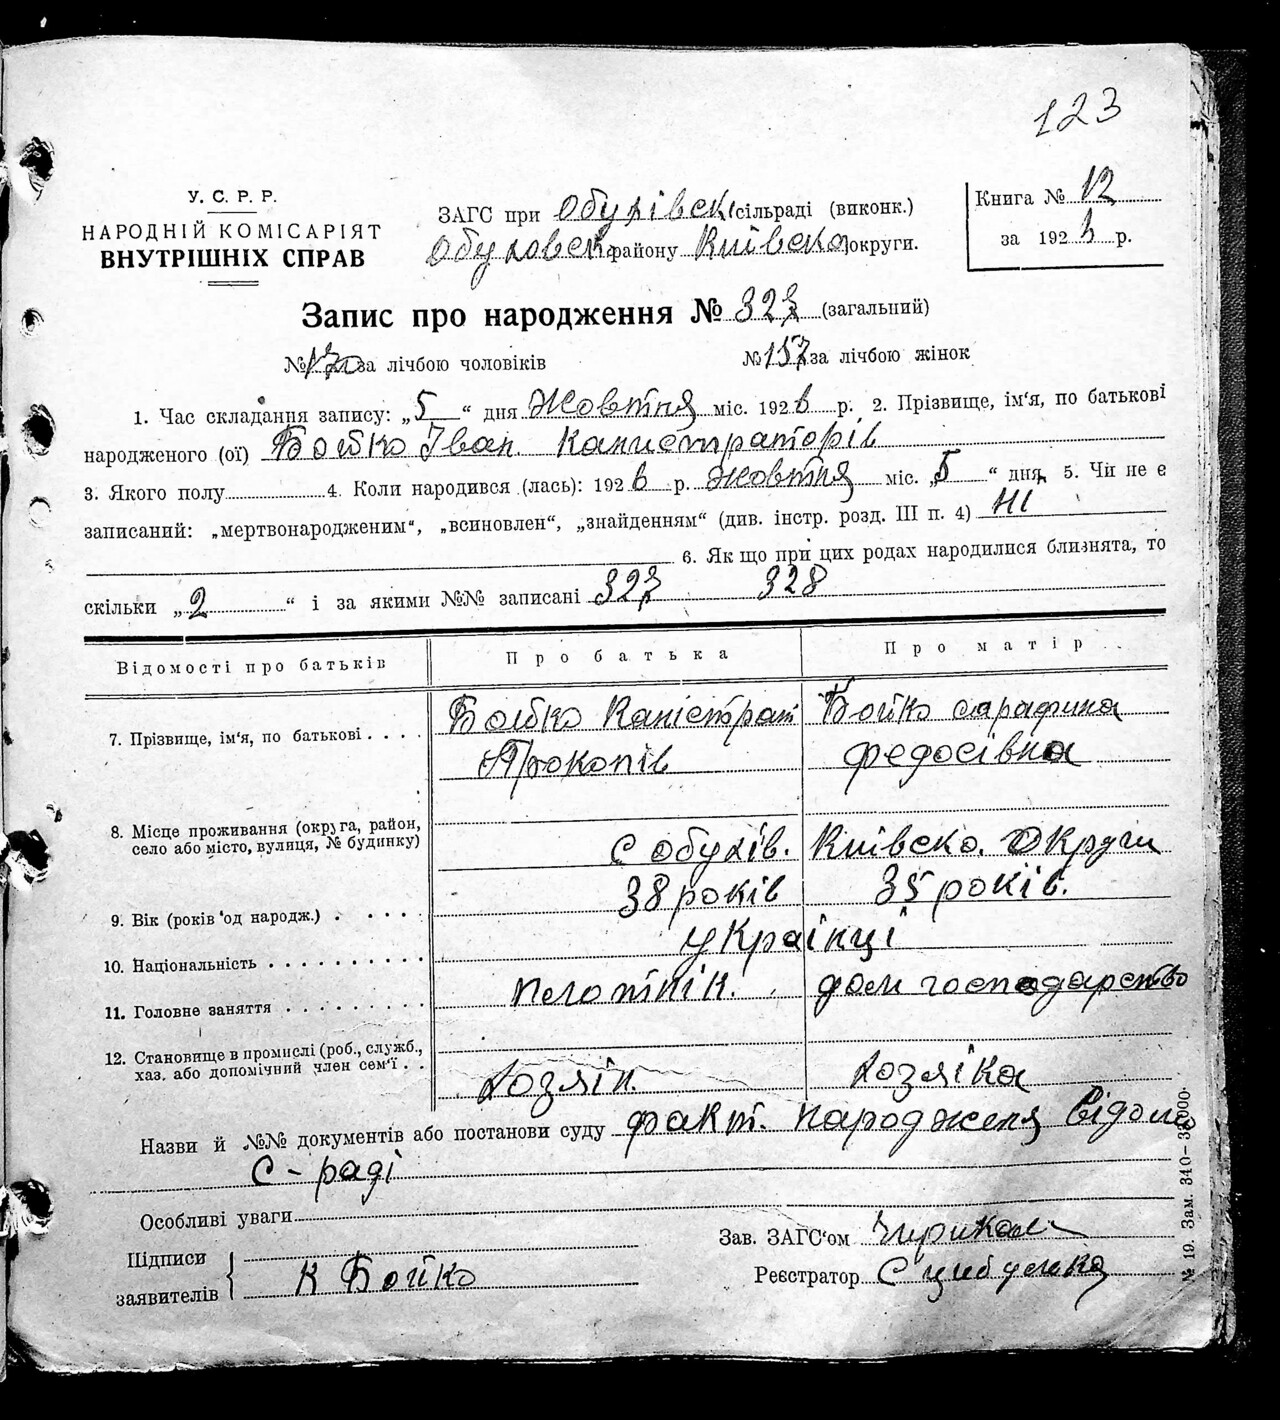 123
У. С. Р. Р.
НАРОДНІЙ КОМІСАРІЯТ
ВНУТРІШНІХ СПРАВ
ЗАГС при Обухівскі сільраді (виконк.)
Обуховск району Київско округи.
Книга № 12
за 1926 р.
Запис про народження № 327 (загальний)
№ 170 за лічбою чоловіків № 157 за лічбою жінок
1. Час складання запису: „5“ дня Жовтня міс. 1926 р. 2. Прізвище, ім'я, по батькові
народженого (ої) Бойко Іван Канистраторів
3. Якого полу 4. Коли народився (лась): 1926 р. жовтня міс. „5“ дня, 5. Чи не є
записаний: „мертвонародженим“, „всиновлен“, „знайденням“ (див. інстр. розд. III п. 4) Ні
6. Як що при цих родах народилися близнята, то
скільки „2“ і за якими №№ записані 327 328
Відомості про батьків Про батька Про матір
7. Прізвище, ім'я, по батькові Бойко Каністрат Бойко сарафина
Прокопів федосівна
8. Місце проживання (округа, район,
село або місто, вулиця, № будинку) с обухів. Київско. Округи
9. Вік (років од народж.) 38 років 35 років.
10. Національність українці
11. Головне заняття плотнік. дом господарство
12. Становище в промислі (роб., служб.,
хаз. або допомічний член сем'ї хозяін. хозяіка
Назви й №№ документів або постанови суду факт. народженя відомо
с-раді
Особливі уваги
Підписи
заявителів К Бойко
Зав. ЗАГС'ом
Реєстратор С Цибуенко
№ 19. Зам. 340-